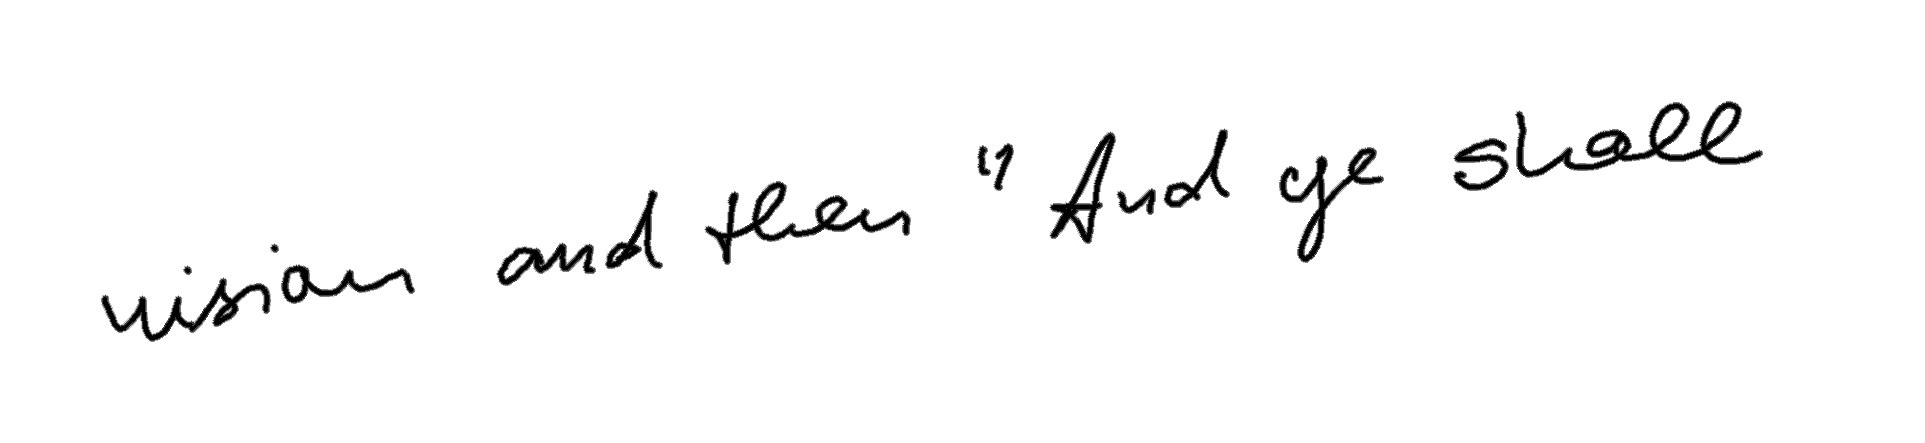 vision and then "And ye shall